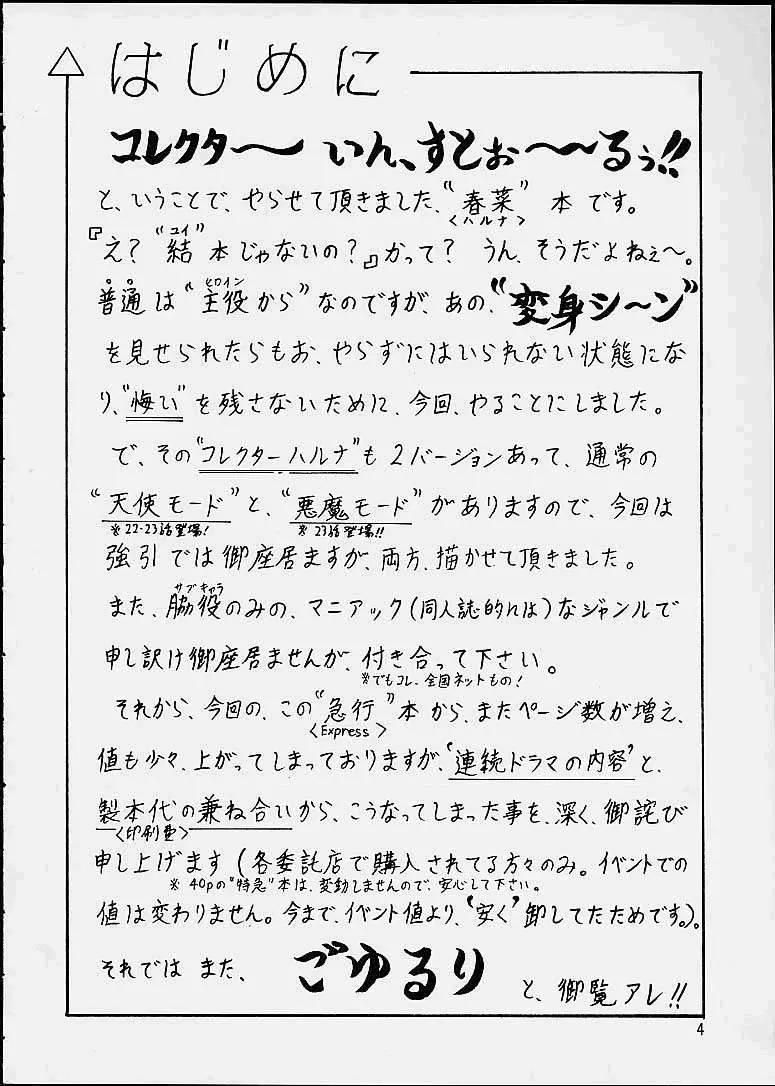 はじめに
コレクター〜 いん、すとぉ〜〜るぅ!!
と、いうことで、やらせて頂きました、“春菜” 本です。
<ハルナ>
ユイ
『え? “結” 本じゃないの?』かって? うん、そうだよねぇ〜。
ヒロイン
普通は“主役から”なのですが、あの、“変身シ〜ン”
を見せられたらもお、やらずにはいられない状態にな
り、“悔い”を残さないために、今回、やることにしました。
で、その“コレクターハルナ”も2バージョンあって、通常の
“天使モード”と、“悪魔モード”がありますので、今回は
※22-23話登場! ※23話登場!!
強引では御座居ますが、両方、描かせて頂きました。
サブキャラ
また、脇役のみの、マニアック(同人誌的には)なジャンルで
申し訳け御座居ませんが、付き合って下さい。
※でもコレ、全国ネットもの!
それから、今回の、この“急行”本から、またページ数が増え、
<Express>
値も少々、上がってしまっておりますが、‘連続ドラマの内容’と、
製本代の兼ね合いから、こうなってしまった事を、深く、御詫び
<印刷費>
申し上げます(各委託店で購入されてる方々のみ。イベントでの
※40pの“特急”本は、変動しませんので、安心して下さい。
値は変わりません。今まで、イベント値より、‘安く’卸してたためです。)。
それでは また、 ごゆるり と、御覧アレ!!
4